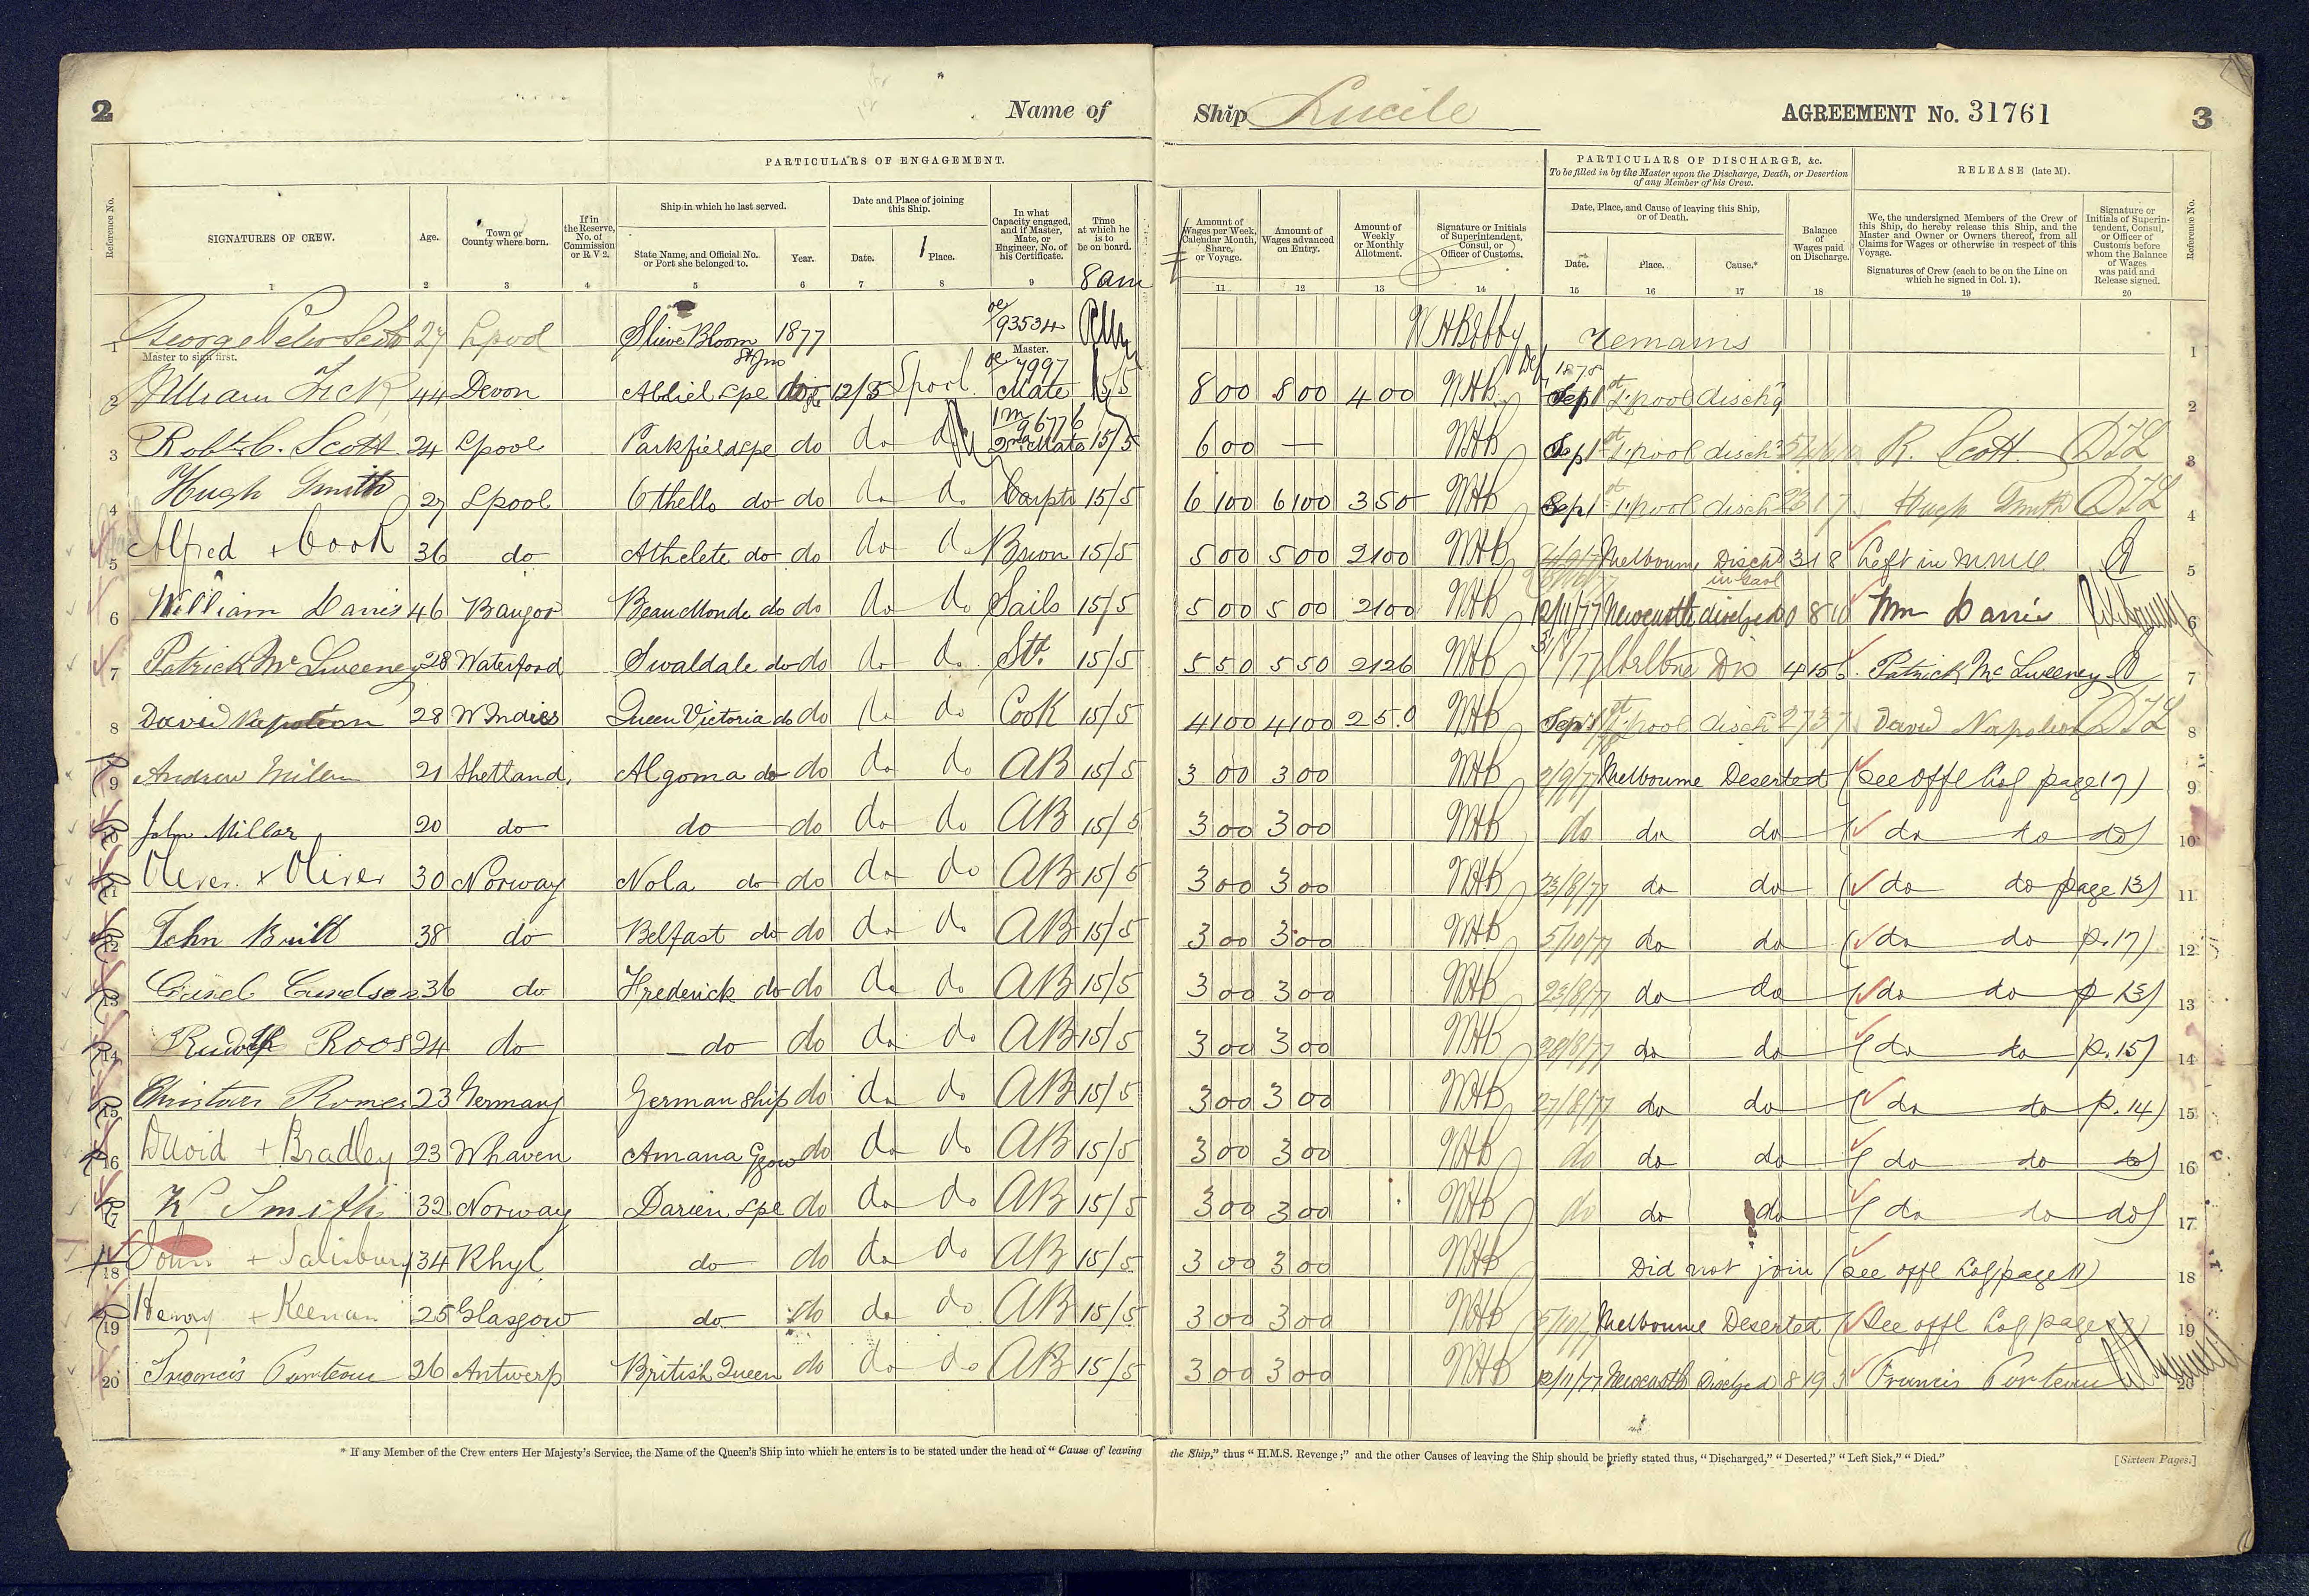 2 Name of Ship Lucile AGREEMENT No. 31761 3
PARTICULARS OF ENGAGEMENT.
PARTICULARS OF DISCHARGE, &c.
To be filled in by the Master upon the Discharge, Death, or Desertion of any Member of his Crew.
RELEASE (late M).
Reference No.
SIGNATURES OF CREW.
Age.
Town or County where born.
If in the Reserve, No. of Commission or R V 2.
Ship in which he last served.
State Name, and Official No. or Port she belonged to.
Year.
Date and Place of joining this Ship.
Date.
Place.
In what Capacity engaged, and if Master, Mate, or Engineer, No. of his Certificate.
Time at which he is to be on board.
8 am
Amount of Wages per Week, Calendar Month, Share, or Voyage.
Amount of Wages advanced on Entry.
Amount of Weekly or Monthly Allotment.
Signature or Initials of Superintendent, Consul, or Officer of Customs.
Date, Place, and Cause of leaving this Ship, or of Death.
Date.
Place.
Cause.*
Balance of Wages paid on Discharge.
We, the undersigned Members of the Crew of this Ship, do hereby release this Ship, and the Master and Owner or Owners thereof, from all Claims for Wages or otherwise in respect of this Voyage.
Signatures of Crew (each to be on the Line on which he signed in Col. 1).
Signature or Initials of Superintendent, Consul, or Officer of Customs before whom the Balance of Wages was paid and Release signed.
Reference No.
1 2 3 4 5 6 7 8 9 11 12 13 14 15 16 17 18 19 20
1 George Peter Scott 27 Lpool Slieve Bloom 1877 93534 Remains 1
Master to sign first.
Master.
2 William 44 Devon do 12/5 Lpool 7997 Mate 15/5 8 00 8 00 4 00 WHB 1878 Sep 1st L'pool disch 2
3 Robt C. Scott 24 Lpool Parkfield Lpl do do do 96776 2nd Mate 15/5 6 00 — WHB Sep 1st L'pool disch R. Scott 3
4 Hugh Smith 27 Lpool Othello do do do do Carptr 15/5 6 10 0 6 10 0 3 5 0 WHB Sep 1st L'pool disch Hugh Smith 4
5 Alfred + Cook 36 do Athlete do do do do Bswn 15/5 5 00 5 00 2 10 0 WHB Melbourne Disch in Gaol 3 1 8 Left in 5
6 William Davis 46 Bangor Beau Monde do do do do Sails 15/5 5 00 5 00 2 10 0 WHB 12/11/77 Newcastle Wm Davis 6
7 Patrick McSweeney 28 Waterford Swaldale do do do do Std. 15/5 5 5 0 5 5 0 2 12 6 WHB Dis 4 15 6 Patrick McSweeney 7
8 David Napoleon 28 W Indies Queen Victoria do do do do Cook 15/5 4 10 0 4 10 0 2 5 0 WHB Sep 1st L'pool disch David Napoleon 8
9 Andrew 21 Shetland Algoma do do do do AB 15/5 3 00 3 00 WHB 2/9/77 Melbourne Deserted (See Offl Log page 17) 9
10 John Millar 20 do do do do do AB 15/5 3 00 3 00 WHB do do do (do do do) 10
11 Oliver + Oliver 30 Norway Nola do do do do AB 15/5 3 00 3 00 WHB 23/8/77 do do (do do page 13) 11
12 John 38 do Belfast do do do do AB 15/5 3 00 3 00 WHB 5/10/77 do do (do do p. 17) 12
13 36 do Frederick do do do do AB 15/5 3 00 3 00 WHB 23/8/77 do do (do do p 13) 13
14 Rudolf Roos 24 do do do do do AB 15/5 3 00 3 00 WHB do do (do do p. 15) 14
15 23 Germany German Ship do do do AB 15/5 3 00 3 00 WHB 27/8/77 do do (do do p. 14) 15
16 David + Bradley 23 Whaven Amana do do do AB 15/5 3 00 3 00 WHB do do do (do do do) 16
17 K Smith 32 Norway Darien Lpl do do do AB 15/5 3 00 3 00 WHB do do do (do do do) 17
18 John + Salisbury 34 Rhyl do do do do AB 15/5 3 00 3 00 WHB Did not join (See offl Log page 11) 18
19 Henry + Keenan 25 Glasgow do do do do AB 15/5 3 00 3 00 WHB Melbourne Deserted (See offl Log page 19
20 Francis 26 Antwerp British Queen do do do AB 15/5 3 00 3 00 WHB 12/11/77 Newcastle 8 19 3 Francis 20
* If any Member of the Crew enters Her Majesty's Service, the Name of the Queen's Ship into which he enters is to be stated under the head of "Cause of leaving the Ship," thus "H.M.S. Revenge;" and the other Causes of leaving the Ship should be briefly stated thus, "Discharged," "Deserted," "Left Sick," "Died."
[Sixteen Pages.]